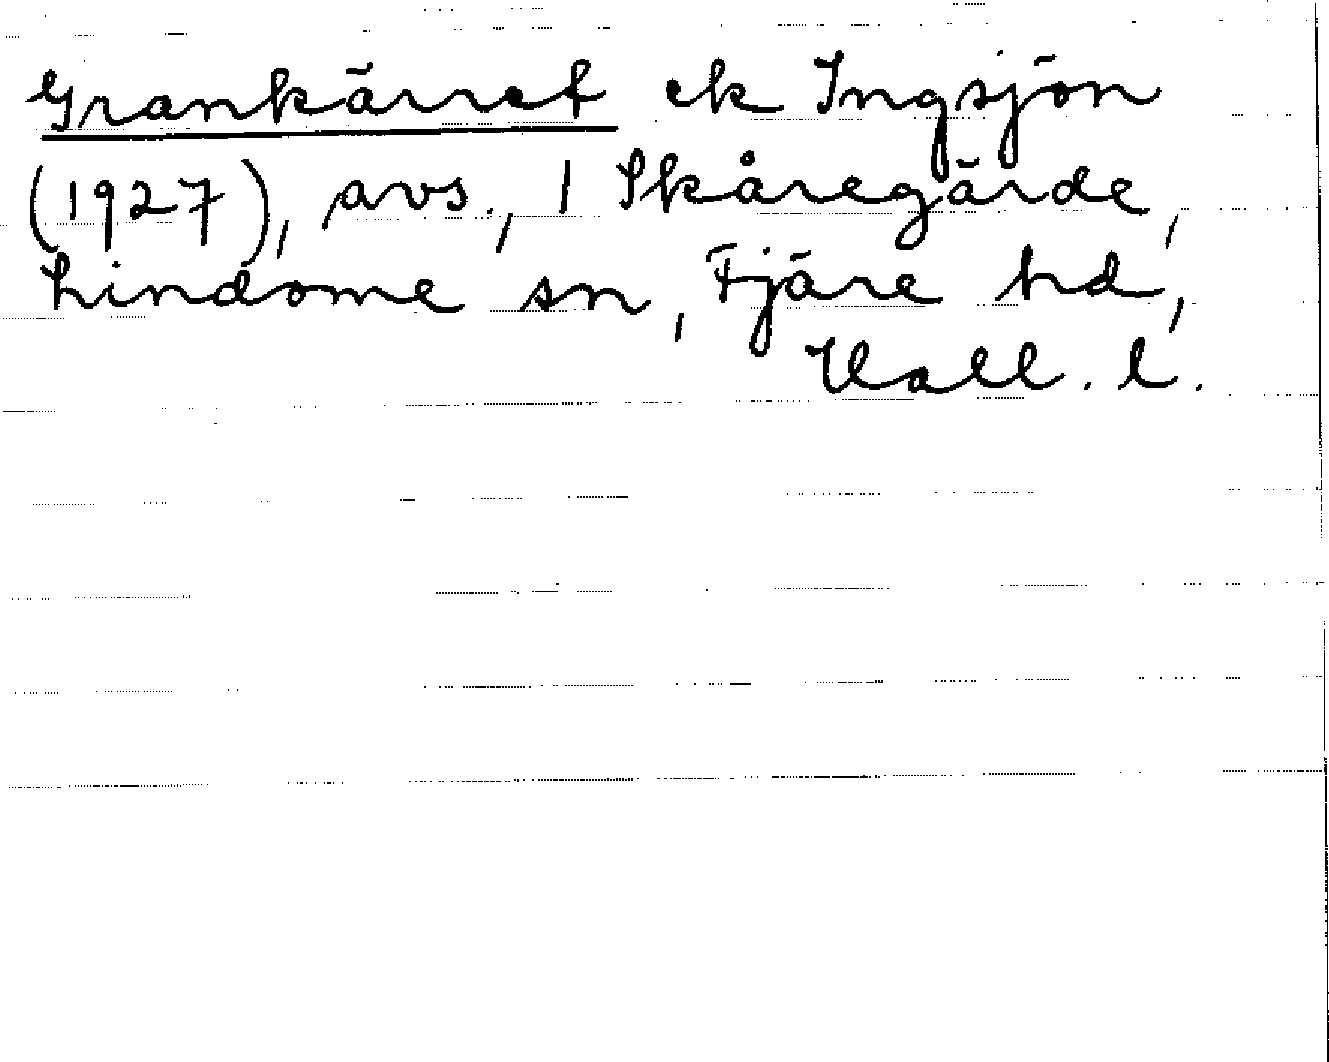 Grankärret ek Ingsjön
(1927), avs., 1 Skåregärde,
Lindome sn, Fjäre hd,
Hall. l.